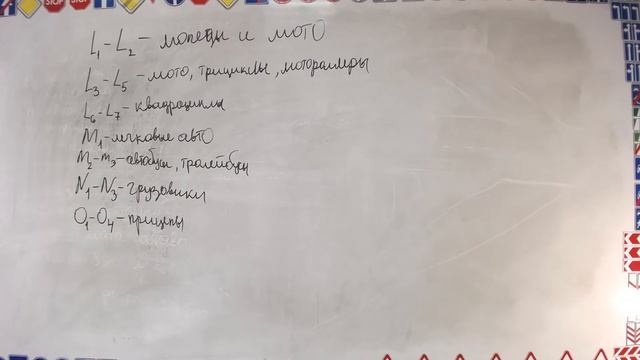 L₁-L₂ – мопеды и мото
L₃-L₅ – мото, трициклы, мотороллеры
L₆-L₇ – квадроциклы
M₁ – легковые авто
M₂-M₃ – автобусы, тролейбусы
N₁-N₃ – грузовики
O₁-O₄ – прицепы